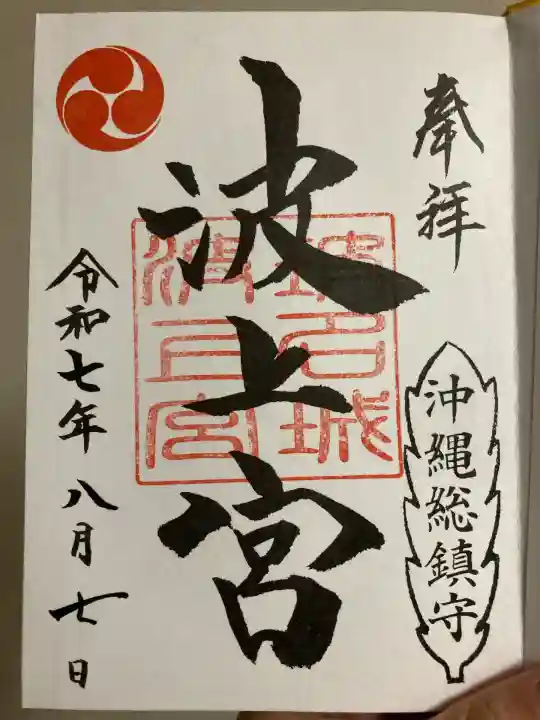 奉拝
沖縄総鎮守
波上宮
令和七年八月七日